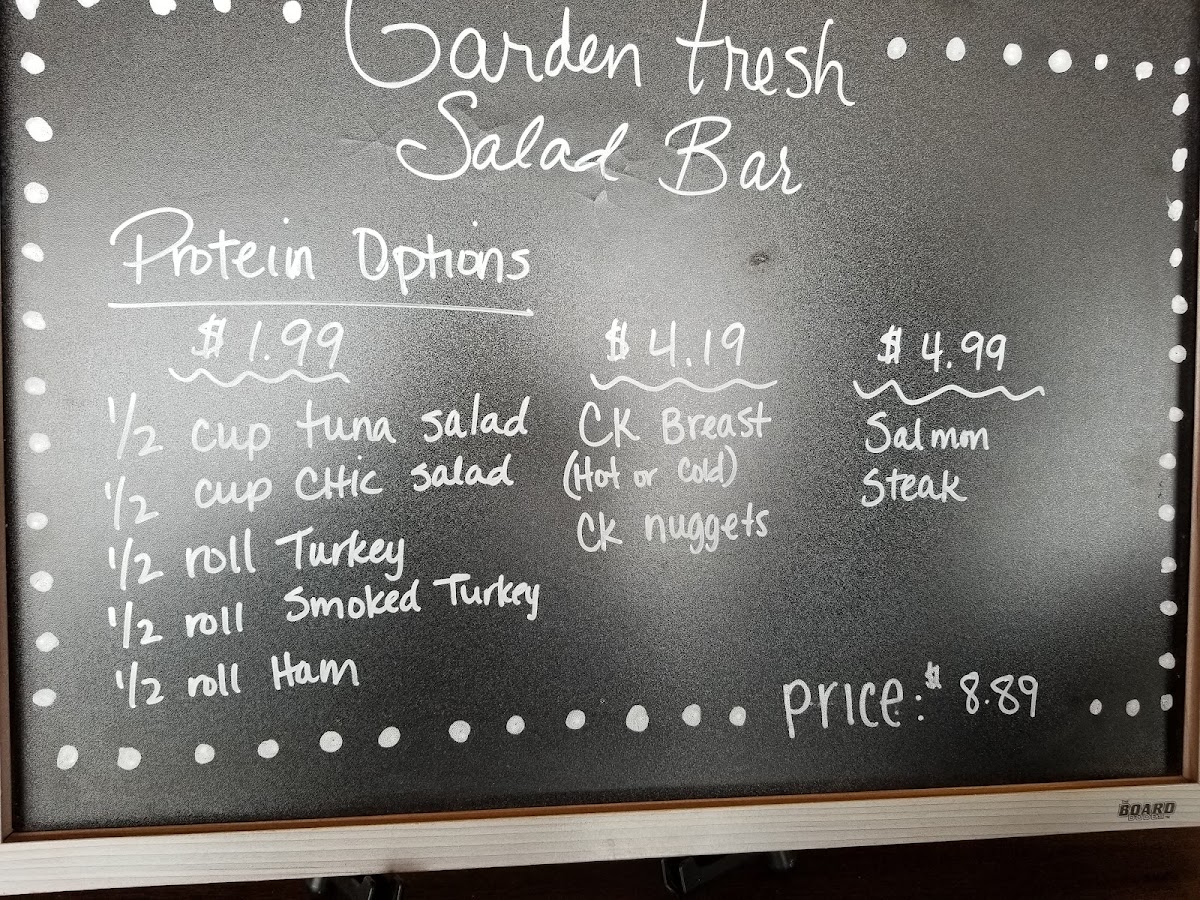 Garden Fresh
Salad Bar
Protein Options
$1.99
1/2 cup tuna salad
1/2 cup CHic salad
1/2 roll Turkey
1/2 roll Smoked Turkey
1/2 roll Ham
$4.19
CK Breast
(Hot or Cold)
CK nuggets
$4.99
Salmon
Steak
price: $8.89
THE
BOARD
DUDES